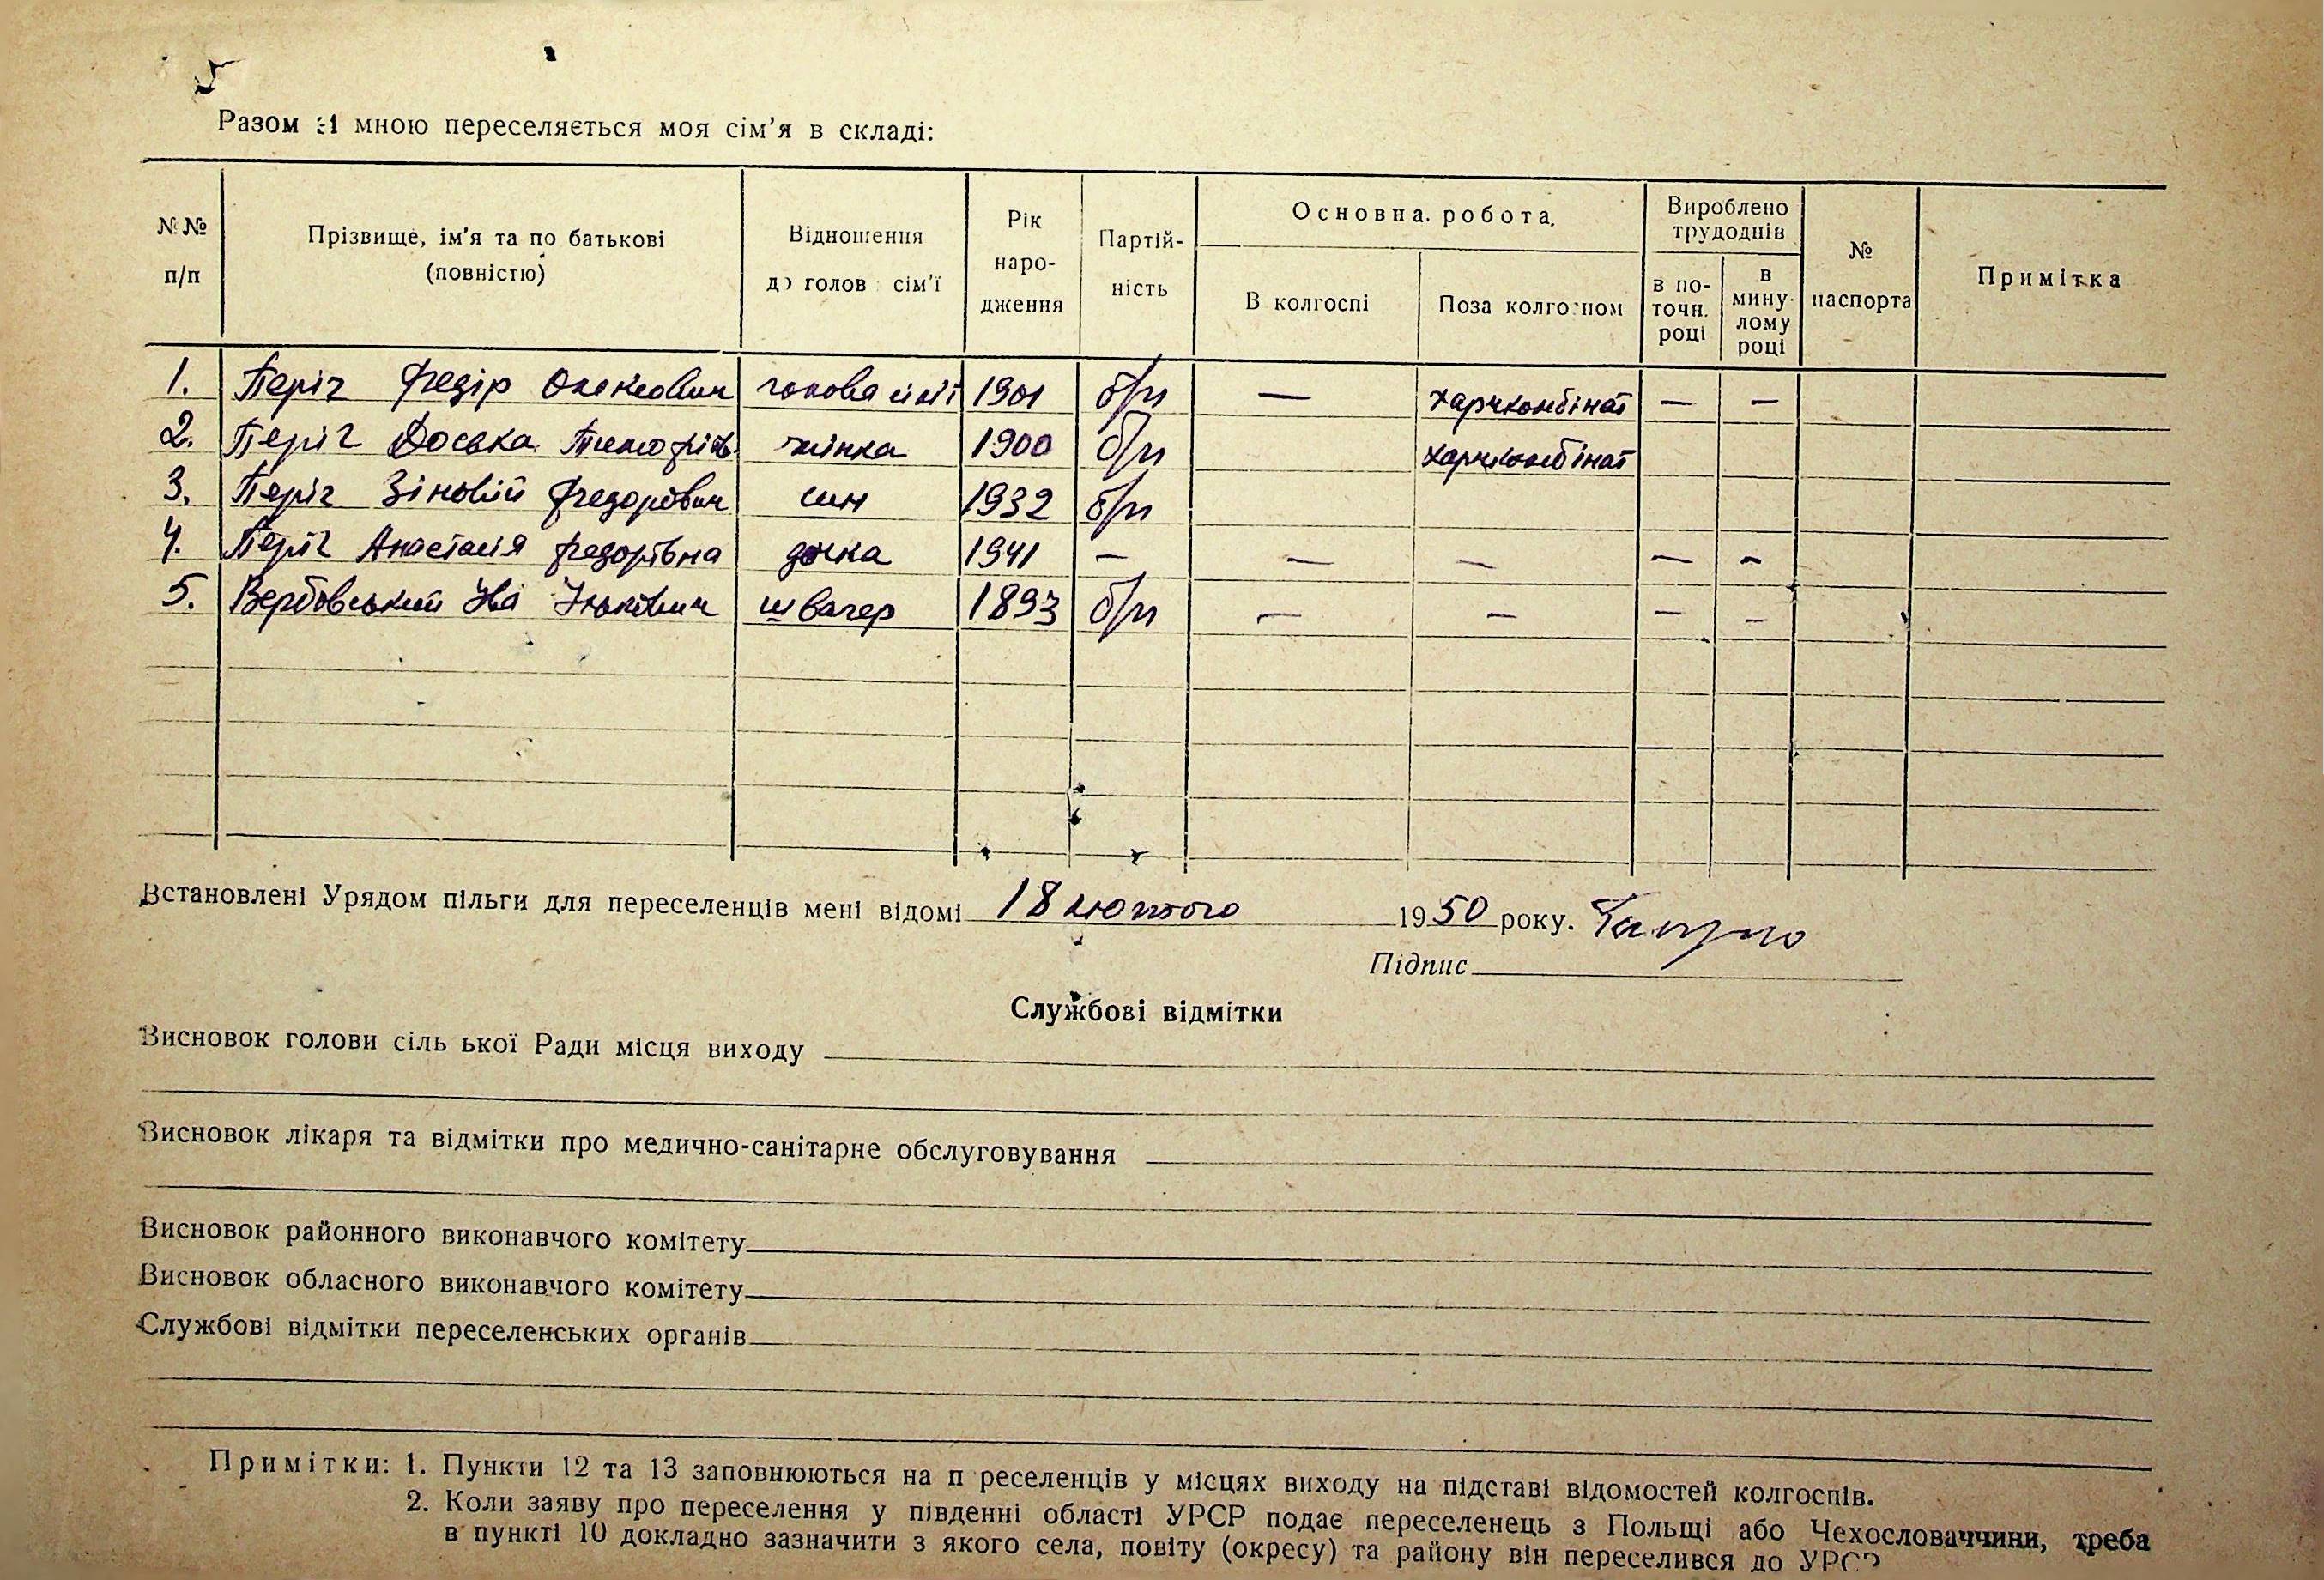 Разом зі мною переселяється моя сім'я в складі:
№№ п/п
Прізвище, ім'я та по батькові (повністю)
Відношення до голов сім'ї
Рік народження
Партійність
Основна робота.
В колгоспі
Поза колгоспом
Вироблено трудоднів
в поточн. році
в минулому році
№ паспорта
Примітка
1. Періг Федір Олексович голова сім'ї 1901 б/п — харчкомбінат — —
2. Періг Доська Тимофіїв. жінка 1900 б/п харчкомбінат
3. Періг Зіновій Федорович син 1932 б/п
4. Періг Анастасія Федорівна дочка 1941 — — — — —
5. Вербовський Ількович швагер 1893 б/п — — — —
Встановлені Урядом пільги для переселенців мені відомі 18 лютого 1950 року.
Підпис
Службові відмітки
Висновок голови сіль ької Ради місця виходу
Висновок лікаря та відмітки про медично-санітарне обслуговування
Висновок районного виконавчого комітету
Висновок обласного виконавчого комітету
Службові відмітки переселенських органів
Примітки: 1. Пункти 12 та 13 заповнюються на п реселенців у місцях виходу на підставі відомостей колгоспів.
2. Коли заяву про переселення у південні області УРСР подає переселенець з Польщі або Чехословаччини, треба
в пункті 10 докладно зазначити з якого села, повіту (окресу) та району він переселився до УРСР